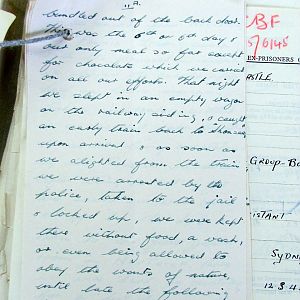 2.
bundled out of the back door.
This was the 5th or 6th day &
our only meal so far except
for chocolate which we carried
on all our efforts. That night
we slept in an empty wagon
on the railway siding, & caught
an early train back to
upon arrival & as soon as
we alighted from the train
we were arrested by the
police, taken to the jail
& locked up, we were kept
there without food, a wash,
or even being allowed to
obey the wants of nature,
until late the following
CBF
5/0145
EX-PRISONERS O
ASTLE
GROUP-BO
ISTANT
SYDN
1 2 3 4